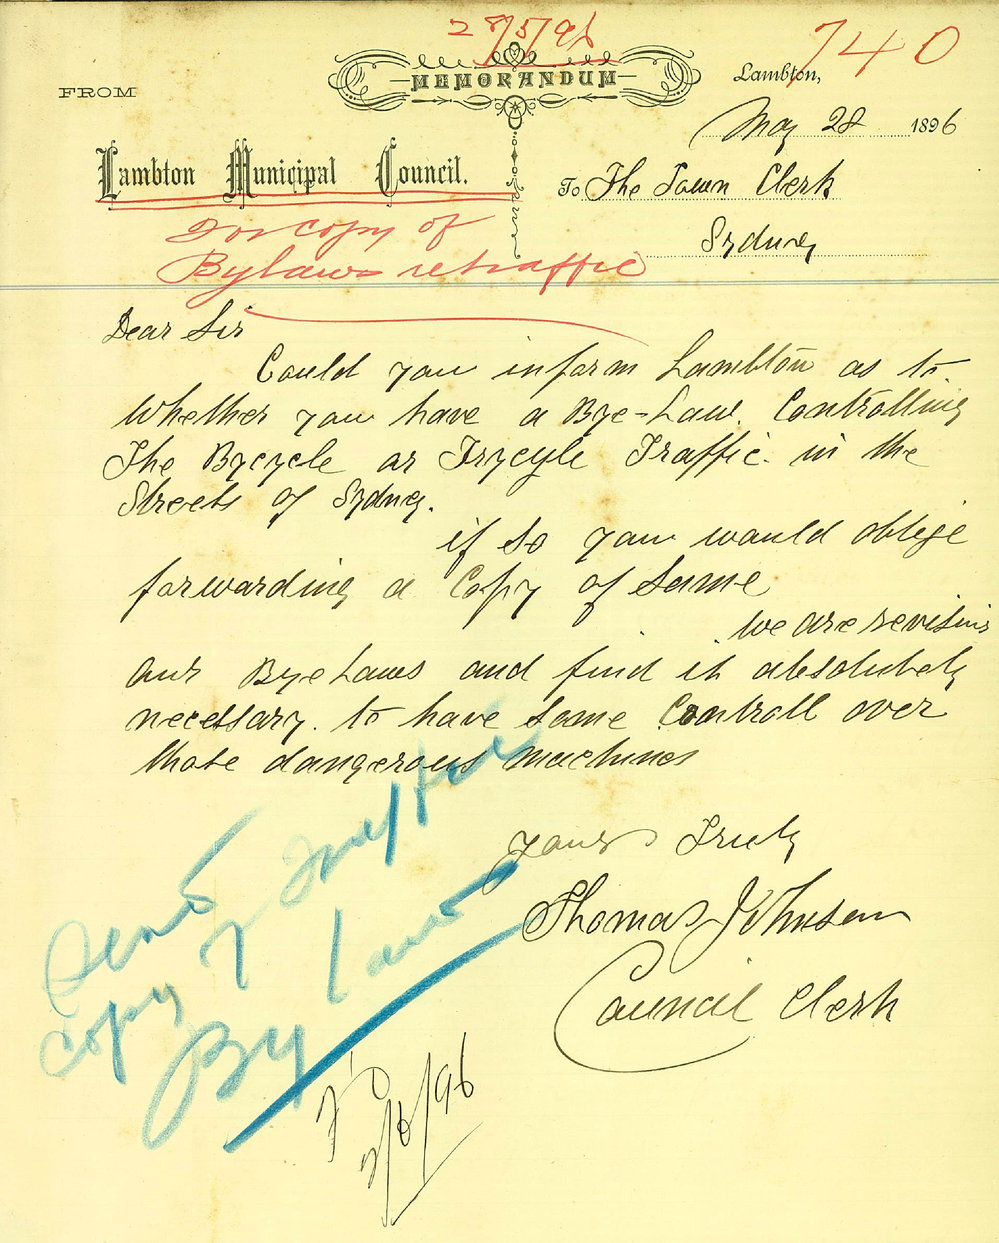 28/5/96
740
MEMORANDUM
FROM
Lambton,
May 28 1896
Lambton Municipal Council.
To The Town Clerk
Sydney
For copy of
Bylaws re traffic
Dear Sir
Could you inform Lambton as to
Whether you have a Bye-Law. Controlling
The Bycycle or Trycyle Traffic. in the
Streets of Sydney.
if so you would oblige
forwarding a Copy of Same
We are revising
Our Bye Laws and find it absolutely
necessary. to have some Controll over
those dangerous machines
Yours Truly
Thomas Johnson
Council Clerk
Send
copy of Traffic
By Laws
2/6/96